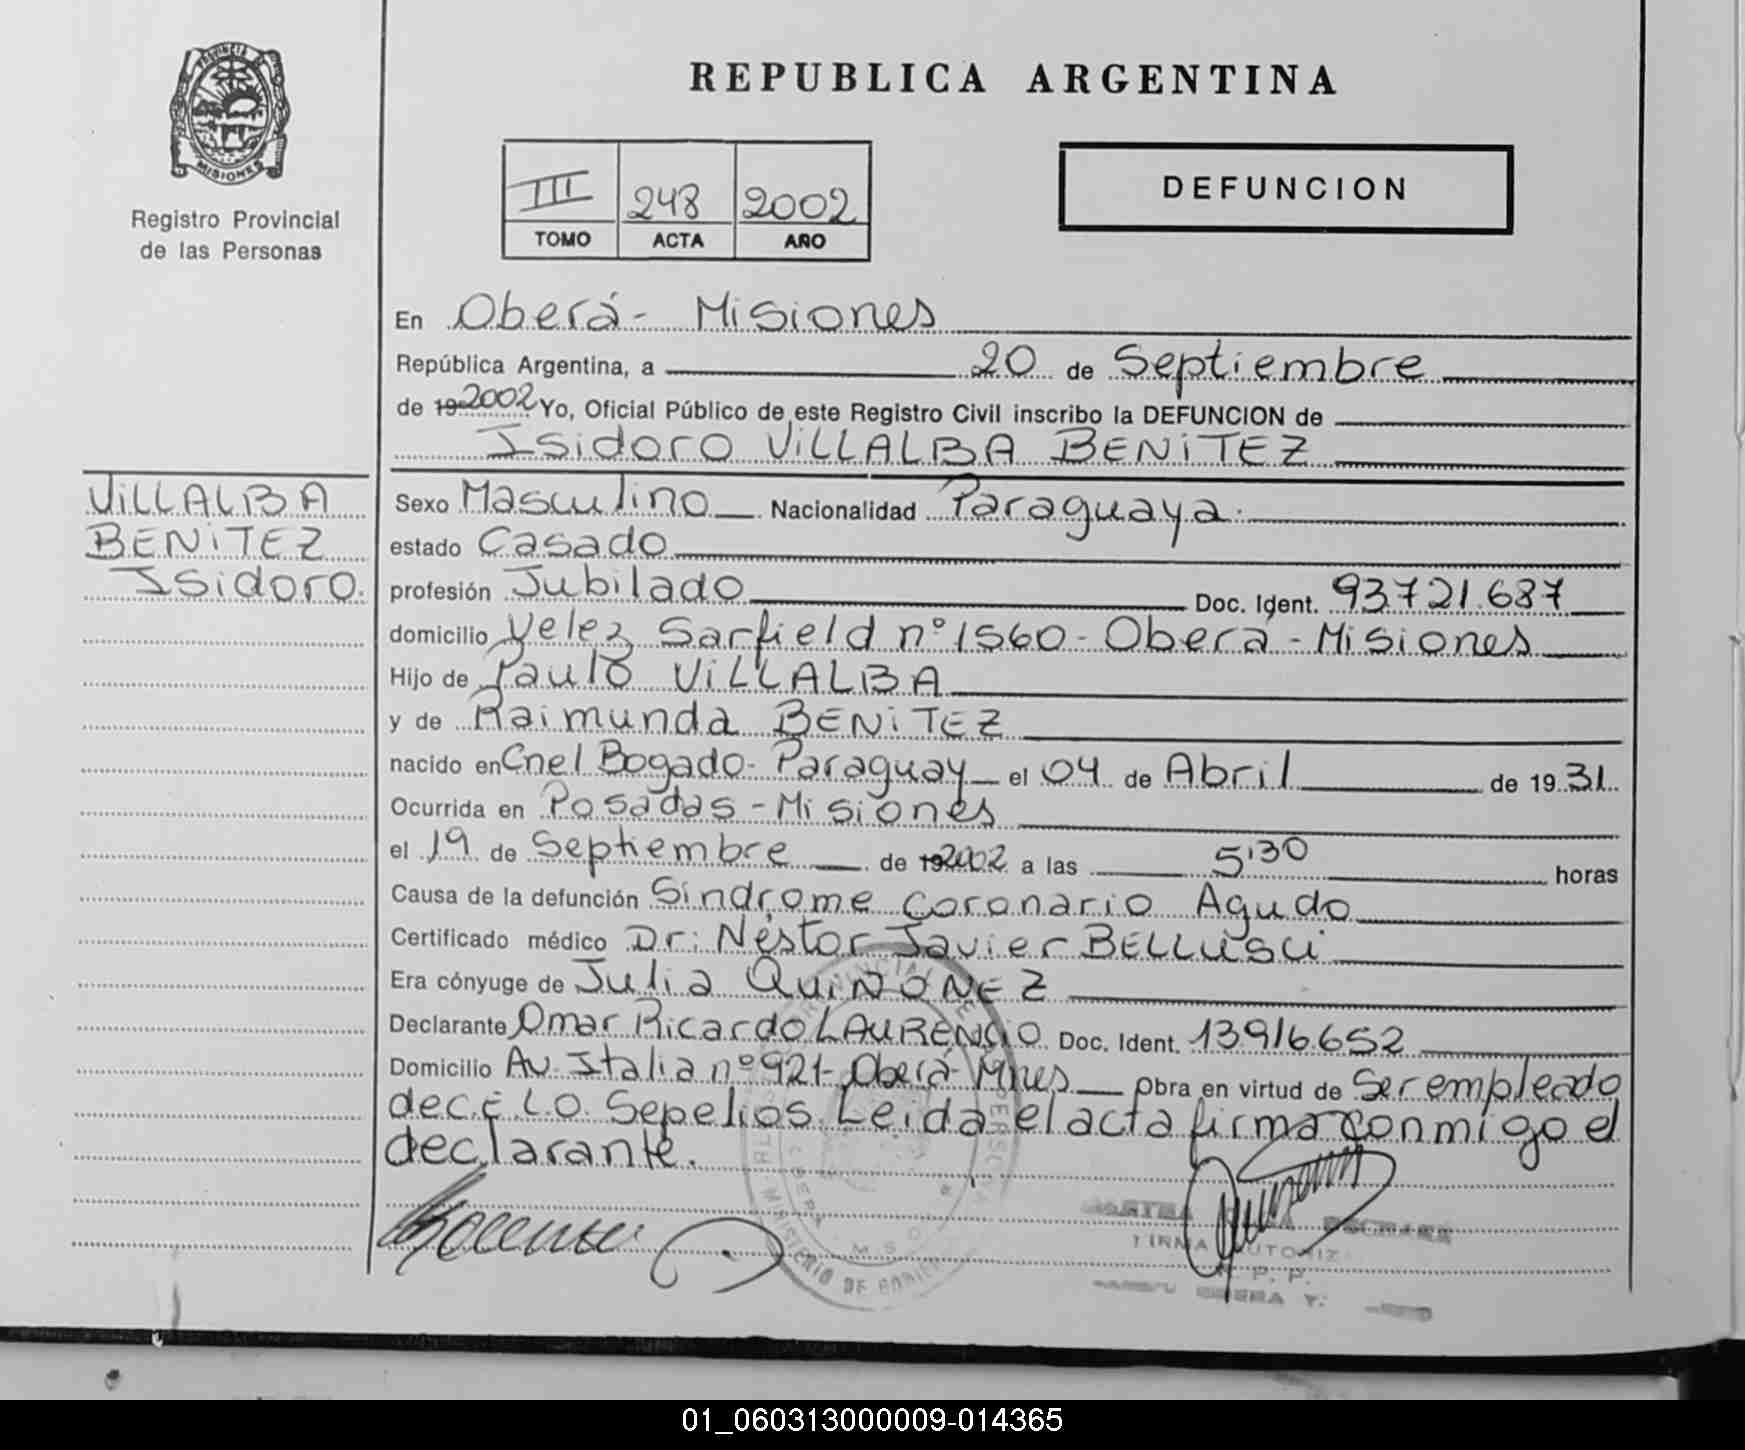 PROVINCIA DE
MISIONES
Registro Provincial
de las Personas
REPUBLICA ARGENTINA
III 248 2002
TOMO ACTA AÑO
DEFUNCION
En Oberá - Misiones
República Argentina, a 20 de Septiembre
de 19 2002 Yo, Oficial Público de este Registro Civil inscribo la DEFUNCION de
Isidoro VILLALBA BENITEZ
VILLALBA
BENITEZ
Isidoro.
Sexo Masculino Nacionalidad Paraguaya.
estado Casado
profesión Jubilado Doc. Ident. 93721.687
domicilio Velez Sarfield nº 1560 - Oberá - Misiones
Hijo de Paulo VILLALBA
y de Raimunda BENITEZ
nacido en Cnel Bogado - Paraguay el 04 de Abril de 19 31.
Ocurrida en Posadas - Misiones
el 19 de Septiembre de 19 2002 a las 5'30 horas
Causa de la defunción Sindrome coronario Agudo
Certificado médico Dr: Néstor Javier BELLUSCI
Era cónyuge de Julia QUIÑONEZ
Declarante Omar Ricardo LAURENCIO Doc. Ident. 13916.652
Domicilio Av. Italia nº 921 - Oberá - Mnes Obra en virtud de Ser empleado
de C.E.L.O. Sepelios. Leida el acta firma conmigo el
declarante.
MINISTERIO DE
FIRMA
01_060313000009-014365